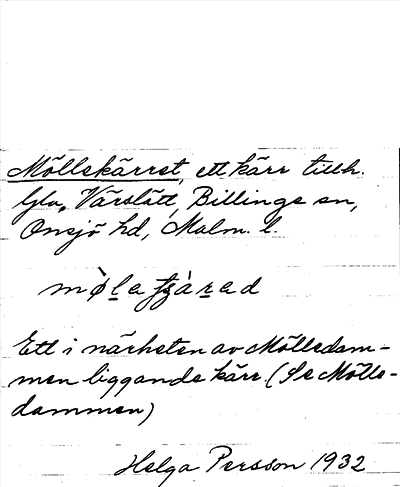 Möllekärret, ett kärr tillh.
Gla. Värslätt, Billinge sn,
Onsjö hd, Malm. l.
Ett i närheten av Mölledam-
men liggande kärr (Se Mölle-
dammen)
Helga Persson 1932